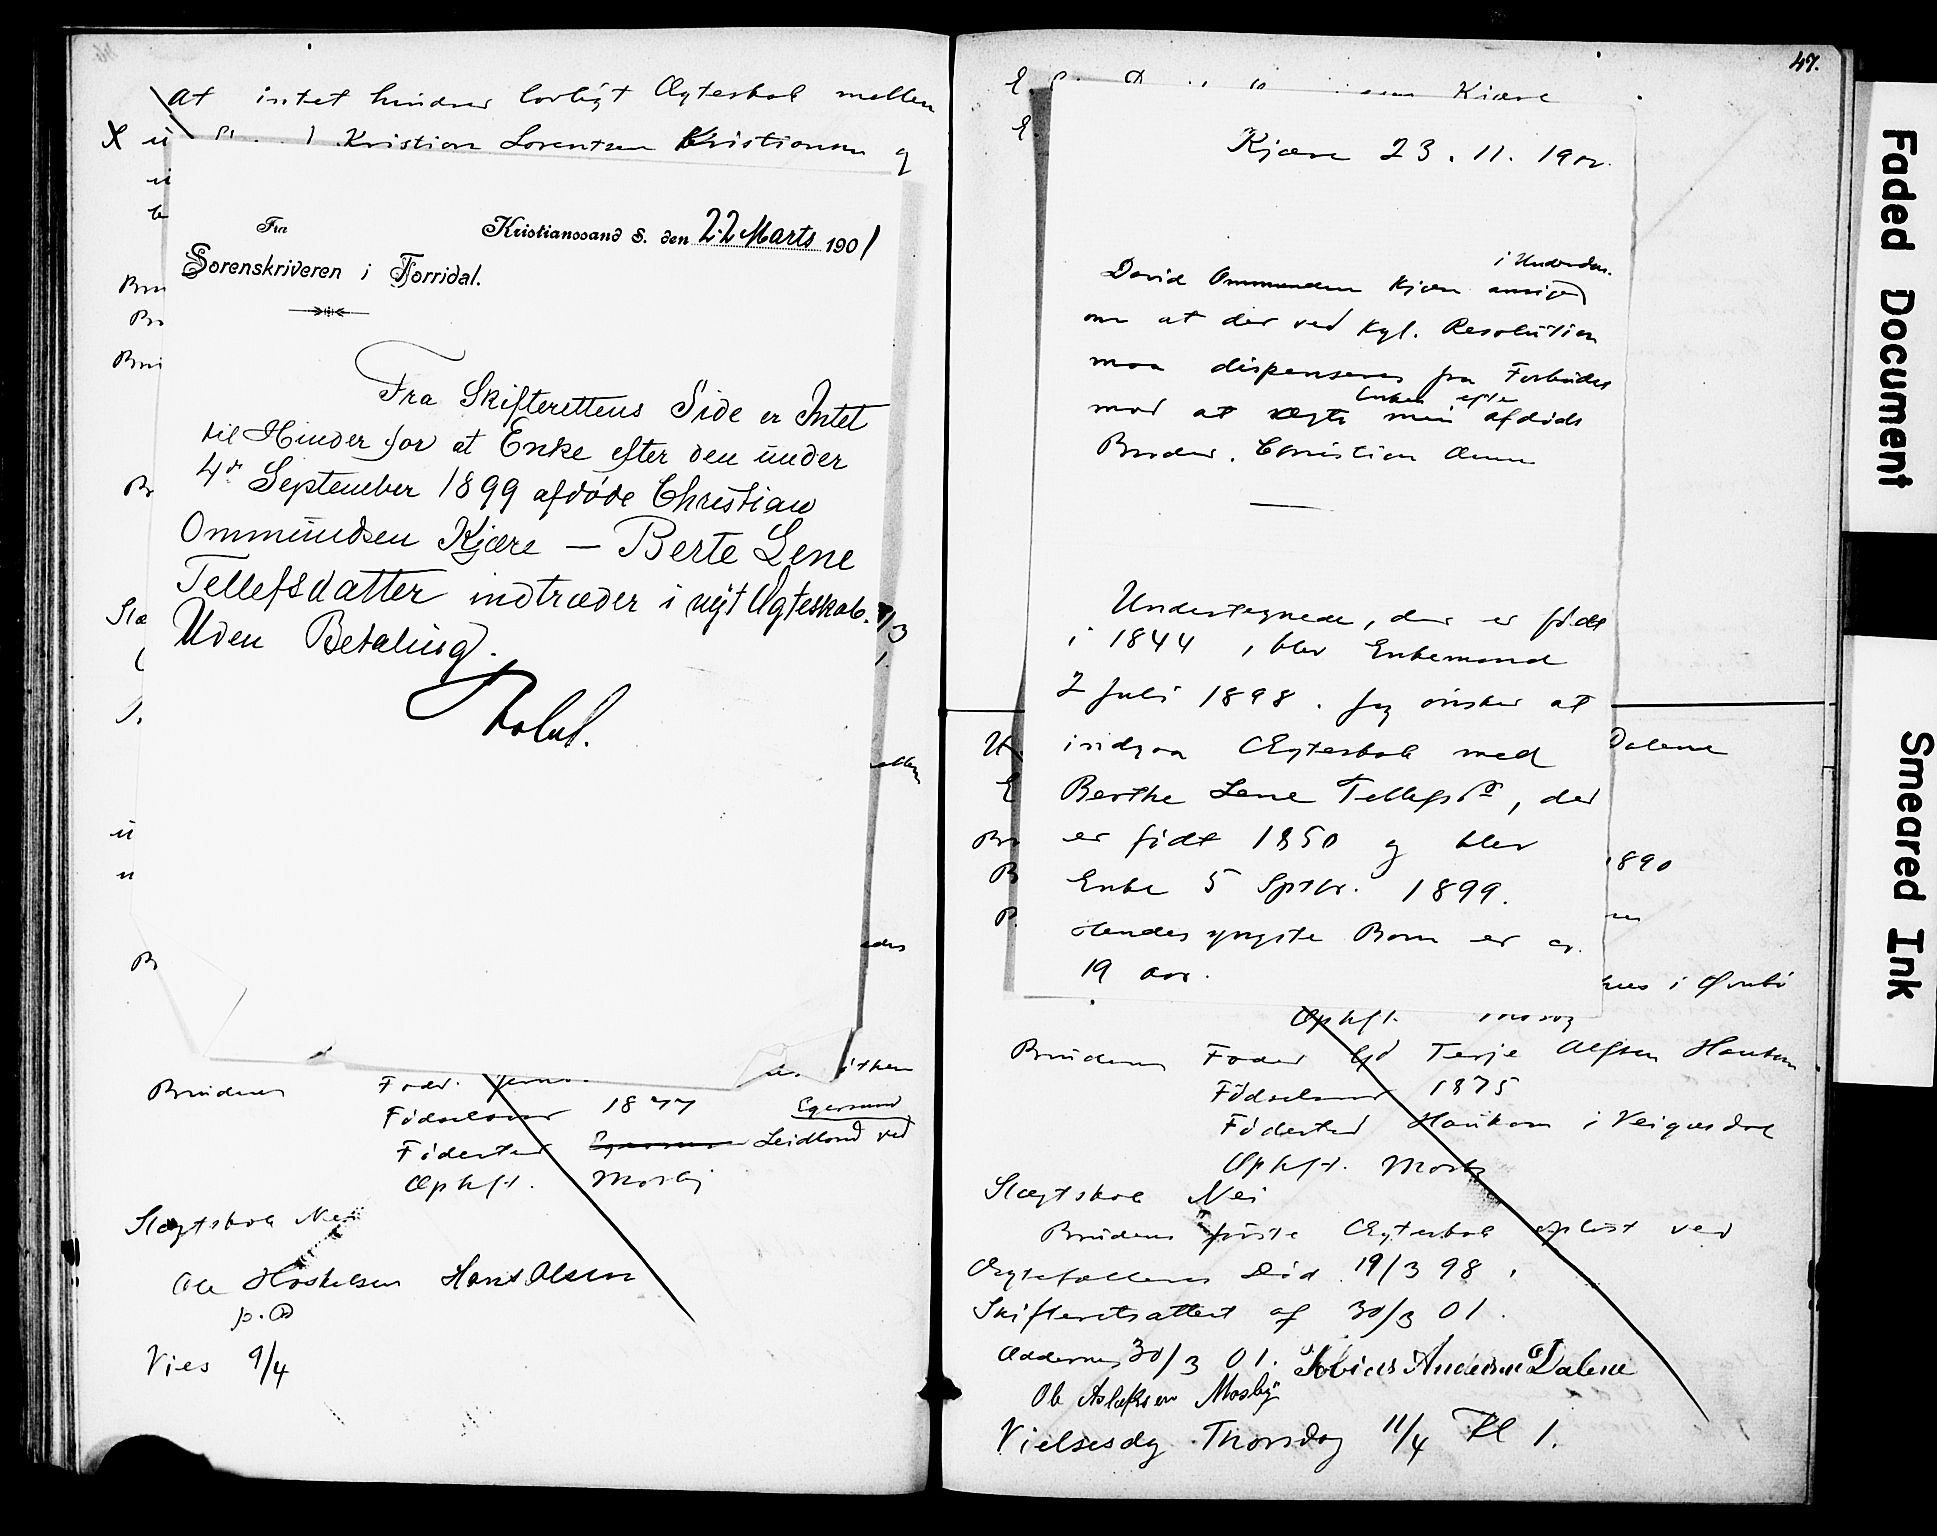 At intet hindrer lovligt Ægteskab mellem
Kristian Lorentsen Kristiansen og
Fra
Sorenskriveren i Torridal.
Kristianssand S. den 22 Marts 1901
Fra Skifterettens Side er Intet
til Hinder for at Enke efter den under
4de September 1899 afdøde Christian
Ommundsen Kjære — Berte Lene
Tellefsdatter indtræder i nyt Ægteskab.
Uden Betaling.
Brudens Fader
Fødselsaar 1877
Fødested Leidland ved Egersund
Ophst. Mosby
Slægtskab Nei
Ole Hans Olsen
p. P
Vies 9/4
47.
Kjære
Kjære 23. 11. 190
David Ommundsen Kjære i Underdan.
om at der ved Kgl. Resolution
maa dispenseres fra Forbudet
mod at ægte min Enken efter afdøde
Broder, Christian Omm
Undertegnede, der er født
i 1844, blev Enkemand
2 Juli 1898. Jeg ønsker at
indgaa Ægteskab med
Berthe Lene Tellefsdtr, der
er født 1850 og blev
Enke 5 Sptbr. 1899.
Hendes yngste Barn er
19 aar.
Dalene
1890
Ophst. Mosby
Brudens Fader Gd Terje Alfsen Haukom
Fødselsaar 1875
Fødested Haukom i Veigusdal
Ophst. Mosby
Slægtskab Nei
Brudens første Ægteskab opløst ved
Ægtefællens Død 19/3 98,
Skifteretsattest af 30/3 01.
Oddernes 30/3 01. Tobias Andersen Dalene
Ole Aslaksen Mosby
Vielsesdg Thorsdag 11/4 Kl 1.
Faded Document
Smeared Ink